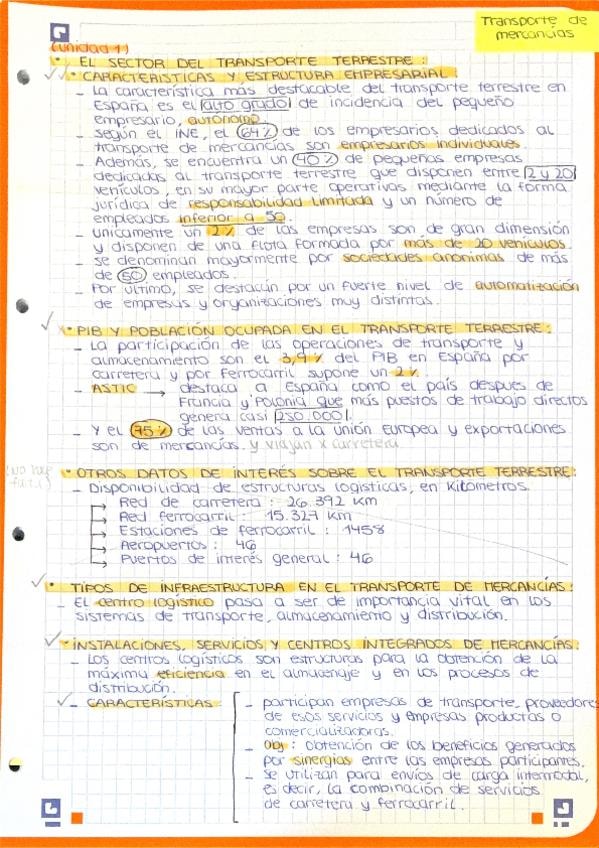 Transporte de
mercancías
(Unidad 1)
• EL SECTOR DEL TRANSPORTE TERRESTRE:
• CARACTERÍSTICAS Y ESTRUCTURA EMPRESARIAL:
- La característica más destacable del transporte terrestre en
España es el alto grado de incidencia del pequeño
empresario, autónomo.
- Según el INE, el 64% de los empresarios dedicados al
transporte de mercancías son empresarios individuales.
- Además, se encuentra un 40% de pequeñas empresas
dedicadas al transporte terrestre que disponen entre 2 y 20
vehículos, en su mayor parte operativas mediante la forma
jurídica de responsabilidad limitada y un número de
empleados inferior a 50.
- Únicamente un 2% de las empresas son de gran dimensión
y disponen de una flota formada por más de 20 vehículos.
- Se denominan mayormente por sociedades anónimas de más
de 50 empleados.
- Por último, se destacan por un fuerte nivel de automatización
de empresas y organizaciones muy distintas.
• PIB Y POBLACIÓN OCUPADA EN EL TRANSPORTE TERRESTRE:
- La participación de las operaciones de transporte y
almacenamiento son el 3,9% del PIB en España por
carretera y por ferrocarril supone un 2%.
- ASTIC → destaca a España como el país despues de
Francia y Polonia que más puestos de trabajo directos
genera casi 250.000.
- Y el 75% de las ventas a la unión europea y exportaciones
son de mercancías. y viajan x carretera
(No hace
falta)
• OTROS DATOS DE INTERÉS SOBRE EL TRANSPORTE TERRESTRE:
- Disponibilidad de estructuras logísticas, en Kilómetros.
→ Red de carretera: 26.392 km
→ Red ferrocarril: 15.327 km
→ Estaciones de ferrocarril: 1458
→ Aeropuertos: 46
→ Puertos de interés general: 46
• TIPOS DE INFRAESTRUCTURA EN EL TRANSPORTE DE MERCANCÍAS:
- El centro logístico pasa a ser de importancia vital en los
sistemas de transporte, almacenamiento y distribución.
• INSTALACIONES, SERVICIOS Y CENTROS INTEGRADOS DE MERCANCÍAS:
- Los centros logísticos son estructuras para la obtención de la
máxima eficiencia en el almacenaje y en los procesos de
distribución.
- CARACTERÍSTICAS
- participan empresas de transporte, proveedores
de esos servicios y empresas productas o
comercializadoras.
- Obj: obtención de los beneficios generados
por sinergias entre las empresas participantes.
- Se utilizan para envíos de carga intermodal,
es decir, la combinación de servicios
de carretera y ferrocarril.